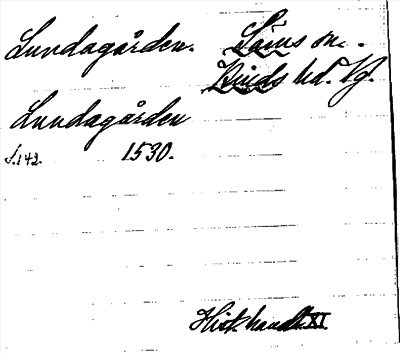 Lundagården. Länns sn.
Kinds hd. Vg.
Lundagården
s. 142. 1530.
Hist. handl. XI